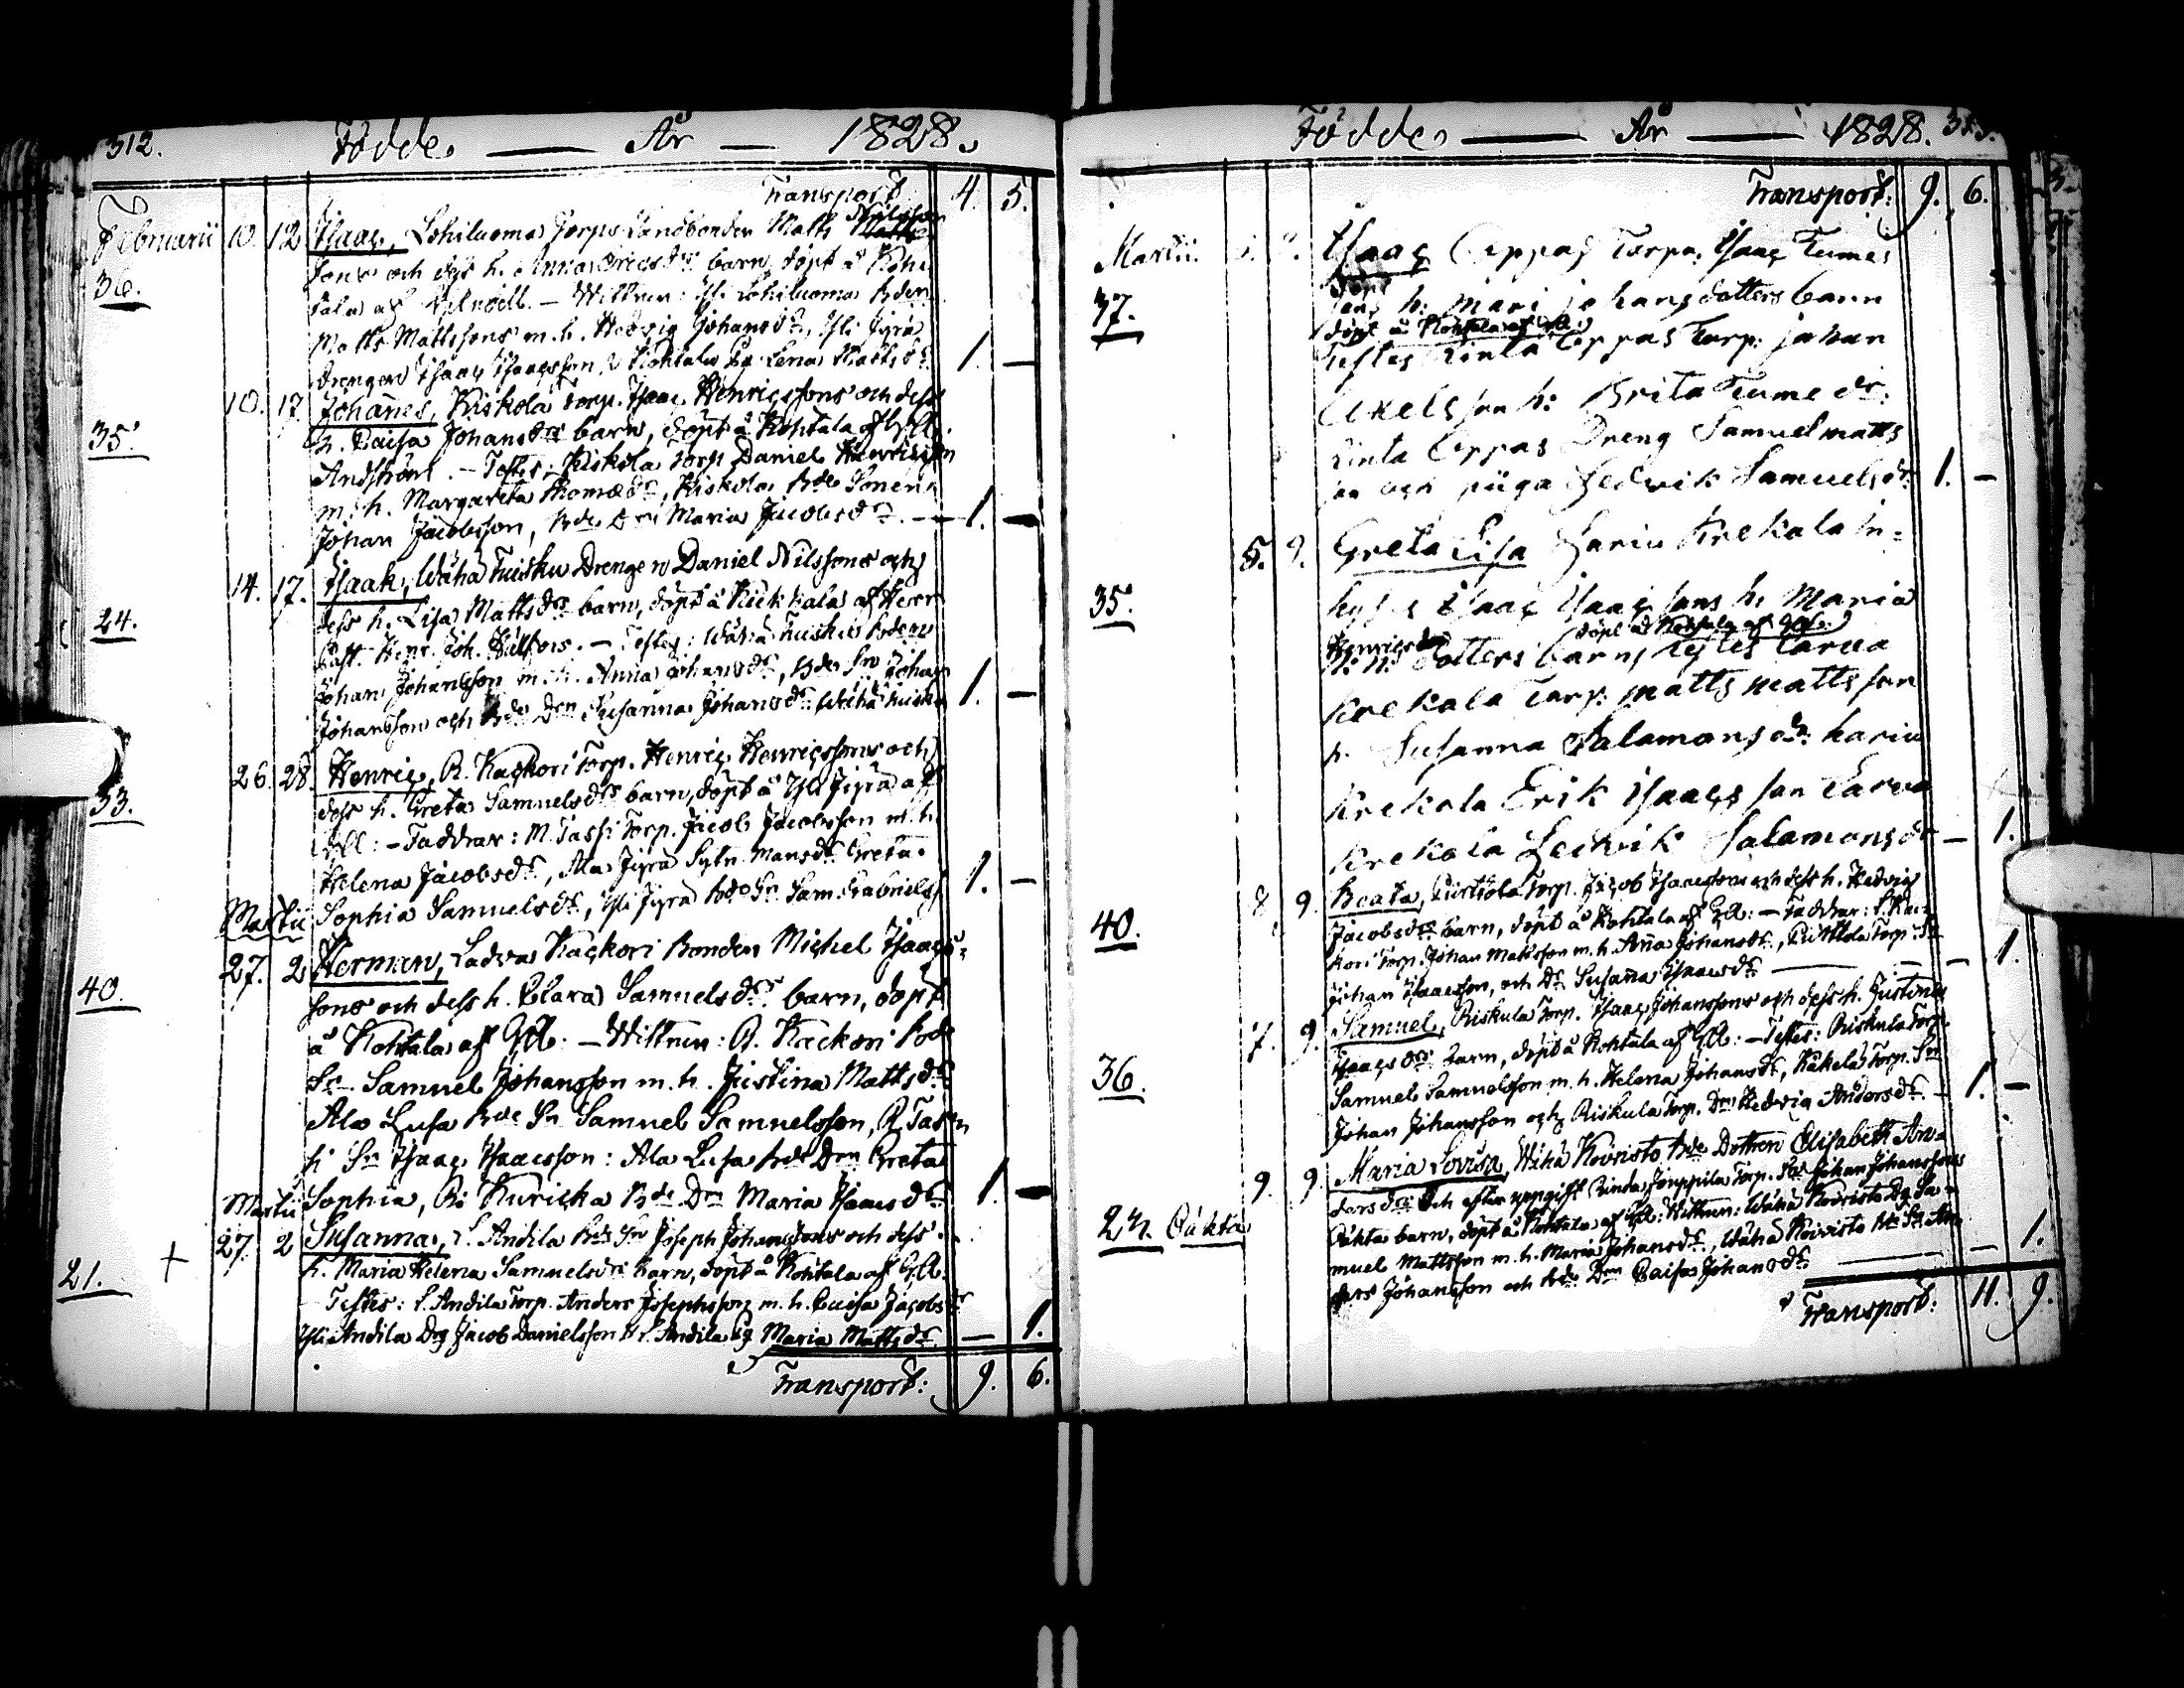 512. Födde. — År — 1828.
Transport 4. 5.
Februarii 10. 12 Isaac, Lohiluoma Torps Landbonden Matts Nilsson
sons och dess h. Anna Ericsdrs barn, döpt å Kohtala
36.
tala af — Wittnen: Yli Lohiluoma Bden
Matts Mattssons m. h. Hedvig Johansdr, Yli Jyrä
Drengen Isaac Isaacsson, Kohtala Pig. Lena Mattsdr. 1. —
10. 17. Johannes, Kiskola Torp. Isaac Henricssons och dess
35.
h. Caisa Johansdrs barn, döpt å Kohtala af
Andström. — Testes: Kiskola Torp Daniel Henricsson
m. h. Margareta Thomædr, Kiskola Bde Sonen
Johan Jacobsson, Bde Drn Maria Jacobsdr. — 1. —
14. 17. Isaak, Wähä Tuisku Drengen Daniel Nilssons och
24.
dess h. Lisa Mattsdrs barn, döpt å Kuckkala af Herr
Past. Henr. Joh. — Testes: Wähä Tuisku Bden
Johan Johansson m. h. Anna Johansdr, Bde Sn Johan
Johansson och Bde Drn Susanna Johansdr Wähä Tuisku 1. —
26. 28. Henric, R. Kackori Torp. Henric Henricssons och
33.
dess h. Greta Samuelsdrs barn, döpt å Yli Jyrä af
— Faddrar: M. Tassi Torp. Jacob Jacobsson m. h.
Helena Jacobsdr, Ala Jyrä Sytn. Mansdr Greta
Sophia Samuelsdr, Yli Jyrä Bde Sn Sam. Gabrielss. 1. —
Martii
27. 2 Herman, Ladva Kackori Bonden Michel Isaacs-
40.
sons och dess h. Clara Samuelsdrs barn, döpt
å Kohtala af GA. — Wittnen: R. Kackori Bde
Sn Samuel Johansson m. h. Justina Mattsdr
Ala Lusa Bde Sn Samuel Samuelsson, R. Tas-
si Sn Isaac Isaacsson: Ala Lusa Bde Drn Greta
Sophia, R. Kuricka Bde Drn Maria Isaacsdr 1. —
Martii
27. 2 Susanna, L. Andila Bde Sn Joseph Johanssons och dess
+
21.
h. Maria Helena Samuelsdrs barn, döpt å Kohtala af GA.
Testes: L. Andila Torp. Anders Josephsson m. h. Caisa Jacobsdr
Yli Andila Drg Jacob Danielsson o L. Andila Pig Maria Mattsdr. — 1.
Transport: 9. 6.
Födde — År — 1828. 313.
Transport: 9. 6.
Martii. Isaac Leppas Torpa, Isaac Tume
37.
sons h: Mari johansdotters barn
döpt å Kohtala af GA.
testes Rinta Leppas Torp: johan
Axelsson h: Brita Tume dr:
Rinta Leppas Dreng Samuel matts
son och piiga Hedvik Samuelsdr: 1. —
5. 9. Greta Lisa Hariu Krekala in-
35.
hyses Isaac Isaacsons h: Maria
Henricsdr döpt å Kohtala af GA.
dotters barn testes Tarva
Krekala Torp: matts mattsson
h. Susanna Salamonsdr: hariu
Krekala Erik Isaacsson Tarva
Krekala Hedvik Salamonsdr — 1.
8. 9. Beata, Torp. Jacob Isaacssons och dess h. Hedvig
40.
Jacobsdrs barn, döpt å Kohtala af GA: — Faddrar: L. Kac-
kori Torp. Johan Mattsson m. h. Anna Johansdr, Torp. Sn
Johan Isaacsson, och Dr Susanna Isaacsdr — — 1.
7. 9. Samuel, Riskula Torp. Isaac Johanssons och dess h. Justina
36.
Isaacsdrs barn, döpt å Kohtala af GA: — Testes: Riskula Torp.
Samuel Samuelsson m. h. Helena Johansdr, Käkelä Torp. Sn
Johan Johansson och Riskula Torp. Drn Hedvig Andersdr. — 1. —
9. 9. Maria Lovisa, Wähä Koivisto Bde Dottren Elisabeth An-
24. Oäkta
dersdrs och efter uppgift Rinda Jouppila Torp. Sn Johan Johanssons
Oäkta barn, döpt å Kohtala af GA: Wittnen: Wähä Koivisto Dg Sa-
muel Mattsson m. h. Maria Johansdr, Wähä Koivisto Bde Sn An-
ders Johansson och Bde Drn Caisa Johansdr — — 1.
Transport: 11. 9.